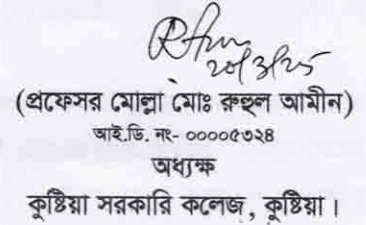 ২০/৩/২৫
(প্রফেসর মোল্লা মোঃ রুহুল আমীন)
আই.ডি. নং- ০০০০৫৩২৪
অধ্যক্ষ
কুষ্টিয়া সরকারি কলেজ, কুষ্টিয়া।